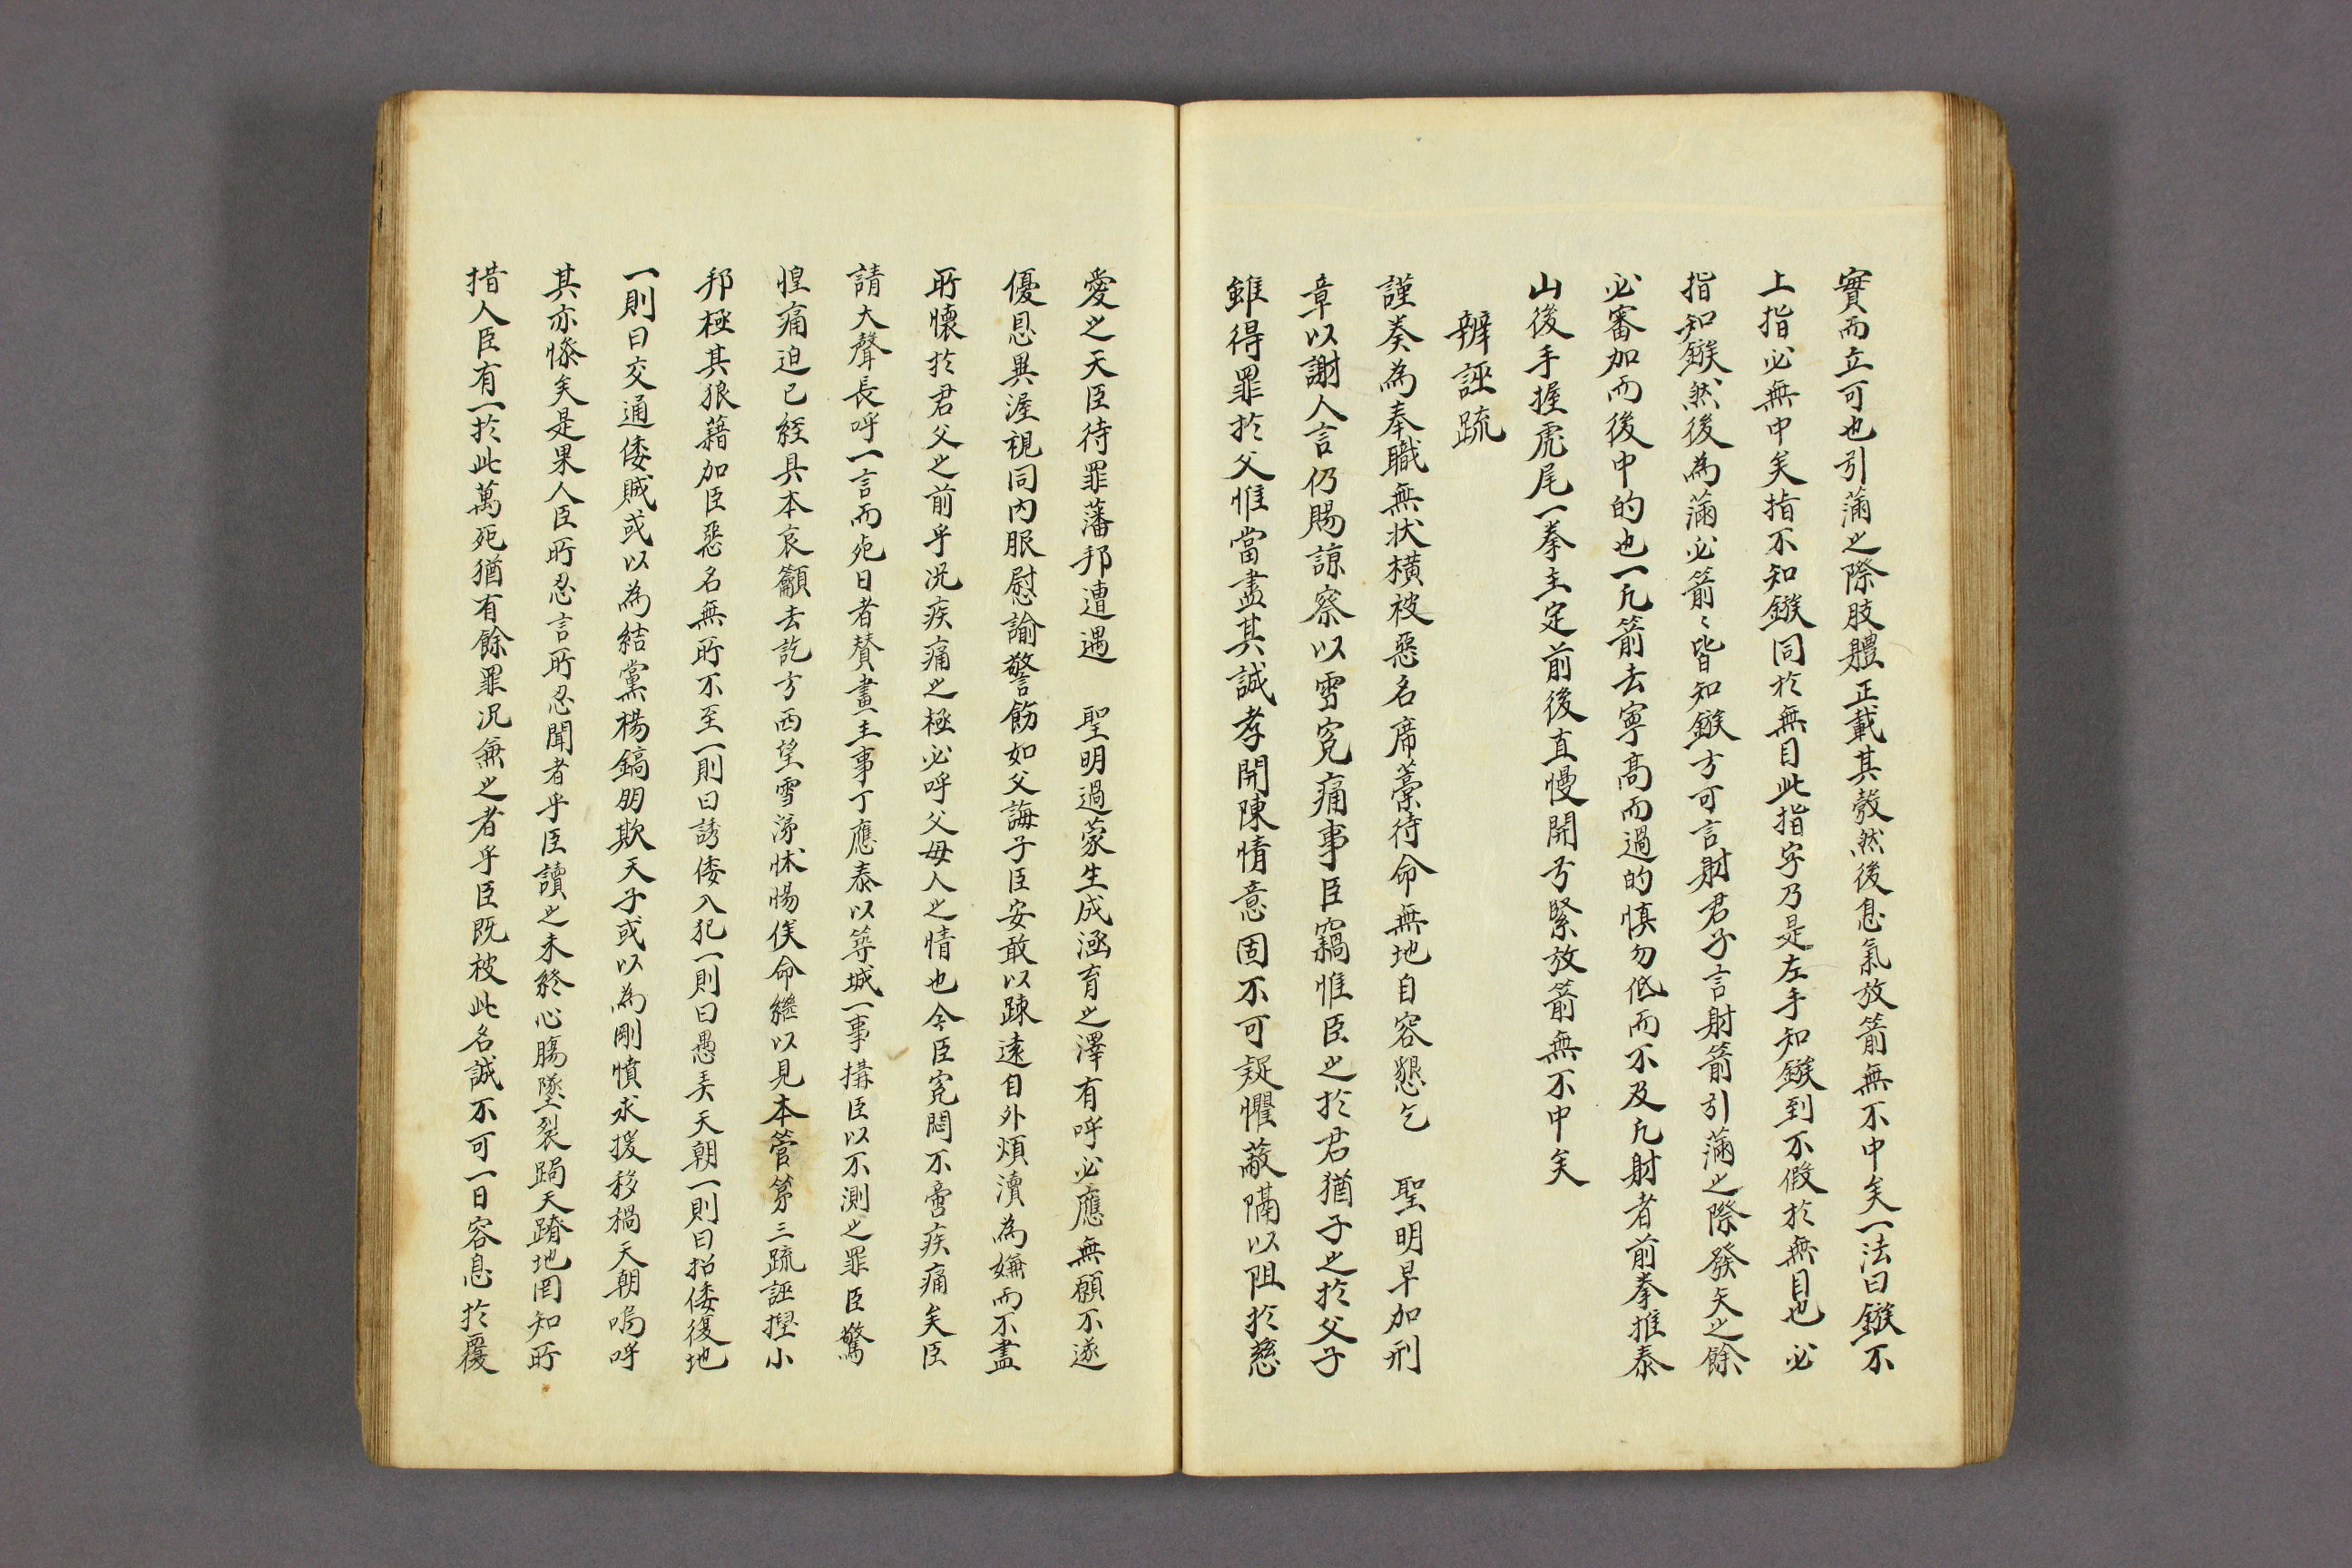 實而立可也引滿之際肢體正載其彀然後息氣放箭無不中矣一法曰鏃不
上指必無中矣指不知鏃同於無目此指字乃是左手知鏃到不假於無目也必
指知鏃然後為滿必箭〻皆知鏃方可言射君子言射箭引滿之際發矢之餘
必審加而後中的也一凡箭去寧高而過的慎勿低而不及凡射者前拳推泰
山後手握虎尾一拳主定前後直慢開弓緊放箭無不中矣
辨誣䟽
謹奏為奉職無状横被惡名席藁待命無地自容懇乞 聖明早加刑
章以謝人言仍賜諒察以雪寃痛事臣竊惟臣之於君猶子之於父子
雖得罪於父惟當盡其誠孝開陳情意固不可疑懼蔽隔以阻於慈
愛之天臣待罪藩邦遭遇 聖明過蒙生成涵育之澤有呼必應無願不遂
優恩異渥視同内服慰諭警飭如父誨子臣安敢以踈遠自外煩瀆為嫌而不盡
所懷於君父之前乎况疾痛之極必呼父母人之情也今臣寃悶不啻疾痛矣臣
請大聲長呼一言而死日者賛畫主事丁應泰以築城一事搆臣以不測之罪臣驚
惶痛迫已經具本哀籲去訖方西望雪涕怵惕俟命繼以見本管第三䟽誣揑小
邦極其狼藉加臣惡名無所不至一則曰誘倭入犯一則曰愚弄天朝一則曰招倭復地
一則曰交通倭賊或以為結黨楊鎬朋欺天子或以為剛愎求援移禍天朝嗚呼
其亦慘矣是果人臣所忍言所忍聞者乎臣讀之未終心膓墜裂跼天蹐地罔知所
措人臣有一於此萬死猶有餘罪况兼之者乎臣既被此名誠不可一日容息於覆